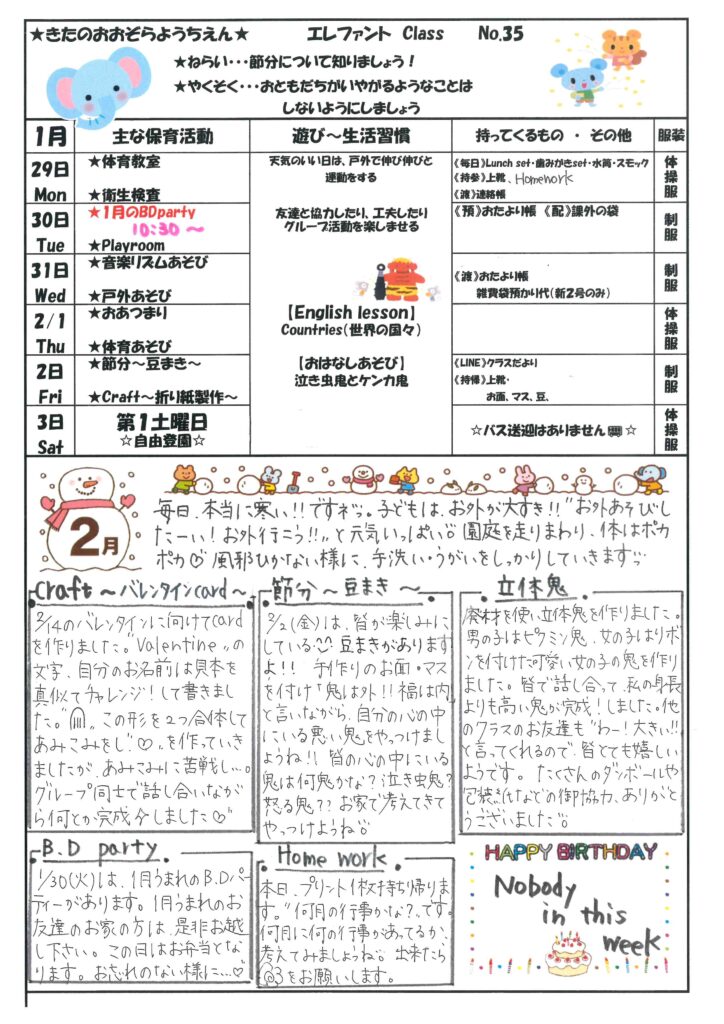 ★きたのおおぞらようちえん★ エレファント Class No.35
★ねらい・・・節分について知りましょう！
★やくそく・・・おともだちがいやがるようなことは
しないようにしましょう
1月 主な保育活動 遊び～生活習慣 持ってくるもの ・ その他 服装
29日 Mon
★体育教室
★衛生検査
天気のいい日は、戸外で伸び伸びと
運動をする
《毎日》Lunch set・歯みがきset・水筒・スモック
《持参》上靴、Homework
《渡》連絡帳
体操服
30日 Tue
★1月のBDparty
10:30 ～
★Playroom
友達と協力したり、工夫したり
グループ活動を楽しませる
《預》おたより帳 《配》課外の袋
制服
31日 Wed
★音楽リズムあそび
★戸外あそび
《渡》おたより帳
雑費袋預かり代（新2号のみ）
制服
2/1 Thu
★おあつまり
★体育あそび
【English lesson】
Countries（世界の国々）
体操服
2日 Fri
★節分～豆まき～
★Craft～折り紙製作～
【おはなしあそび】
泣き虫鬼とケンカ鬼
《LINE》クラスだより
《持帰》上靴・
お面、マス、豆、
制服
3日 Sat
第1土曜日
☆自由登園☆
☆バス送迎はありません☆
体操服
2月
毎日、本当に寒い!!ですネッ。子どもは、お外が大すき!!"お外あそびし
たーい! お外行こう!!"と元気いっぱい 園庭を走りまわり、体はポカ
ポカ♡ 風邪ひかない様に、手洗い・うがいをしっかりしていきますッ
Craft ～ バレンタインcard ～
2/14のバレンタインに向けてcard
を作りました。"Valentine"の
文字、自分のお名前は見本を
真似てチャレンジ！して書きまし
た。" "この形を2つ合体して
あみこみをし"♡"を作っていき
ましたが、あみこみに苦戦し…。
グループ同士で話し合いなが
ら何とか完成しました♡"
節分 ～ 豆まき ～
2/2(金)は、皆が楽しみに
している 豆まきがあります
よ!! 手作りのお面・マス
を付け「鬼は外!! 福は内」
と言いながら、自分の心の中
にいる悪い鬼をやっつけまし
ょうね!! 皆の心の中にいる
鬼は何鬼かな？泣き虫鬼？
怒る鬼？？お家で考えてきて
やっつけようね
立体鬼
廃材を使い立体鬼を作りました。
男の子はピクミン鬼、女の子はリボ
ンを付けた可愛い女の子の鬼を作り
ました。皆で話し合って、私の身長
よりも高い鬼が完成！しました。他
のクラスのお友達も"わー！大きい!!"
と言ってくれるので、皆とても嬉しい
ようです。たくさんのダンボールや
包装紙などの御協力、ありがと
うございました
B.D party
1/30(火)は、1月うまれのB.Dパー
ティーがあります。1月うまれのお
友達のお家の方は、是非お越
し下さい。この日はお弁当とな
ります。お忘れのない様に…♡
Home work
本日、プリント1枚持ち帰りま
す。"何月の行事かな？"です。
何月に何の行事があってるか、
考えてみましょうね 出来たら
をお願いします。
HAPPY BIRTHDAY
Nobody
in this
week